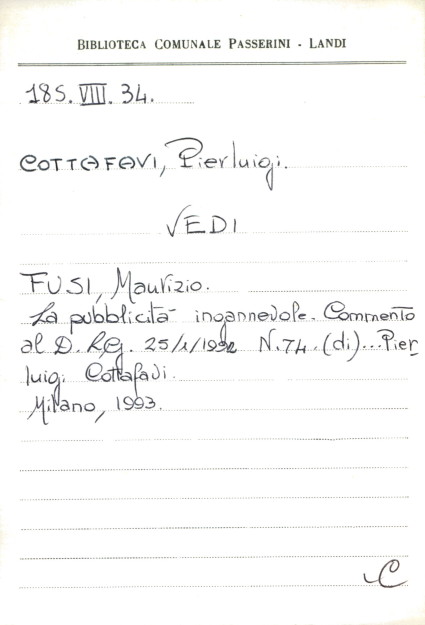 BIBLIOTECA COMUNALE PASSERINI - LANDI
185.VIII.34.
COTTAFAVI, Pierluigi.
VEDI
FUSI, Maurizio.
La pubblicità ingannevole. Commento
al D. Lg. 25/1/1992 N.74.(di)...Pier
luigi Cottafavi.
Milano, 1993.
C